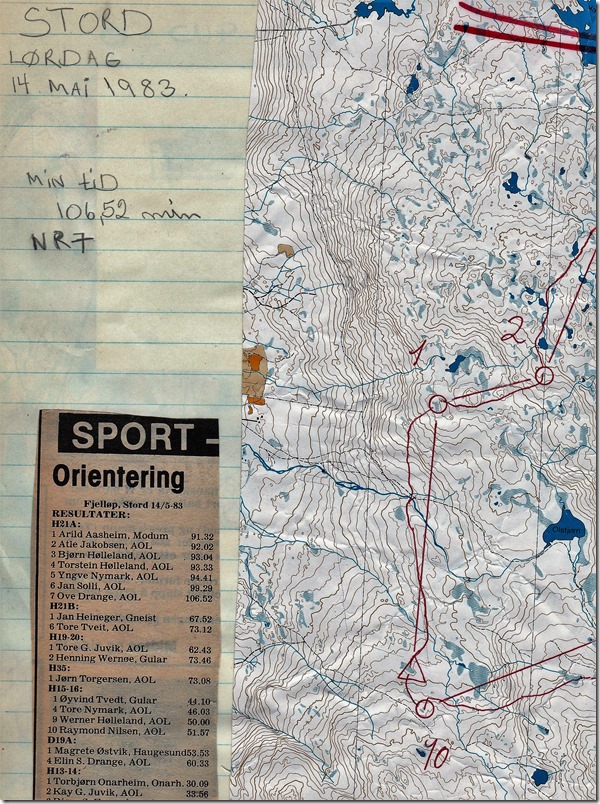 STORD
LØRDAG
14. MAI 1983.
MIN tiD
106,52 min
NR 7
SPORT -
Orientering
Fjelløp, Stord 14/5-83
RESULTATER:
H21A:
1 Arild Aasheim, Modum 91.32
2 Atle Jakobsen, AOL 92.02
3 Bjørn Hølleland, AOL 93.04
4 Torstein Hølleland, AOL 93.33
5 Yngve Nymark, AOL 94.41
6 Jan Solli, AOL 99.29
7 Ove Drange, AOL 106.52
H21B:
1 Jan Heineger, Gneist 67.52
6 Tore Tveit, AOL 73.12
H19-20:
1 Tore G. Juvik, AOL 62.43
2 Henning Wernøe, Gular 73.46
H35:
1 Jørn Torgersen, AOL 73.08
H15-16:
1 Øyvind Tvedt, Gular 44.10
4 Tore Nymark, AOL 46.03
9 Werner Hølleland, AOL 50.00
10 Raymond Nilsen, AOL 51.57
D19A:
1 Magrete Østvik, Haugesund 53.53
4 Elin S. Drange, AOL 60.33
H13-14:
1 Torbjørn Onarheim, Onarh. 30.09
2 Kay G. Juvik, AOL 33.56
1
2
10